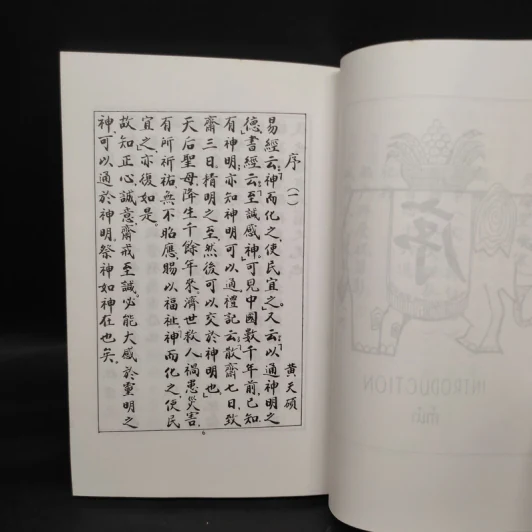 序(一)
黃天碩
易經云:「神而化之,使民宜之。」又云:「以通神明之
德。」書經云:「至誠感神。」可見中國數千年前,已知
有神明,亦知神明可以通。禮記云:「散齋七日,致
齋三日,精明之至,然後可以交於神明也。」
天后聖母降生千餘年來,濟世救人,禍患災害,
有所祈祐,無不昭應,賜以福祉,神而化之,使民
宜之,亦復如是。
故知正心誠意,齋戒至誠,必能大感於靈明之
神,可以通於神明。祭神如神在也矣。
INTRODUCTION